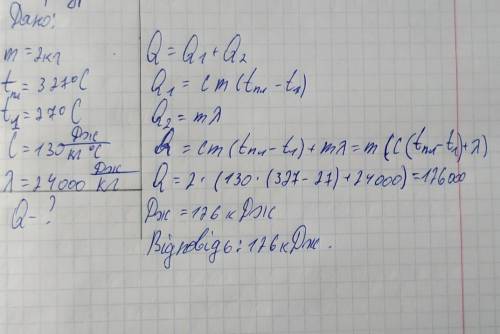 Дано:
m = 2кг
tпл = 327°C
t1 = 27°C
C = 130 Дж/кг°C
λ = 24000 Дж/кг
Q - ?
Q = Q1 + Q2
Q1 = cm(tпл - t1)
Q2 = mλ
Q = cm(tпл - t1) + mλ = m(c(tпл - t1) + λ)
Q = 2 · (130 · (327 - 27) + 24000) = 126000
Дж = 126 кДж
Відповідь: 126 кДж.